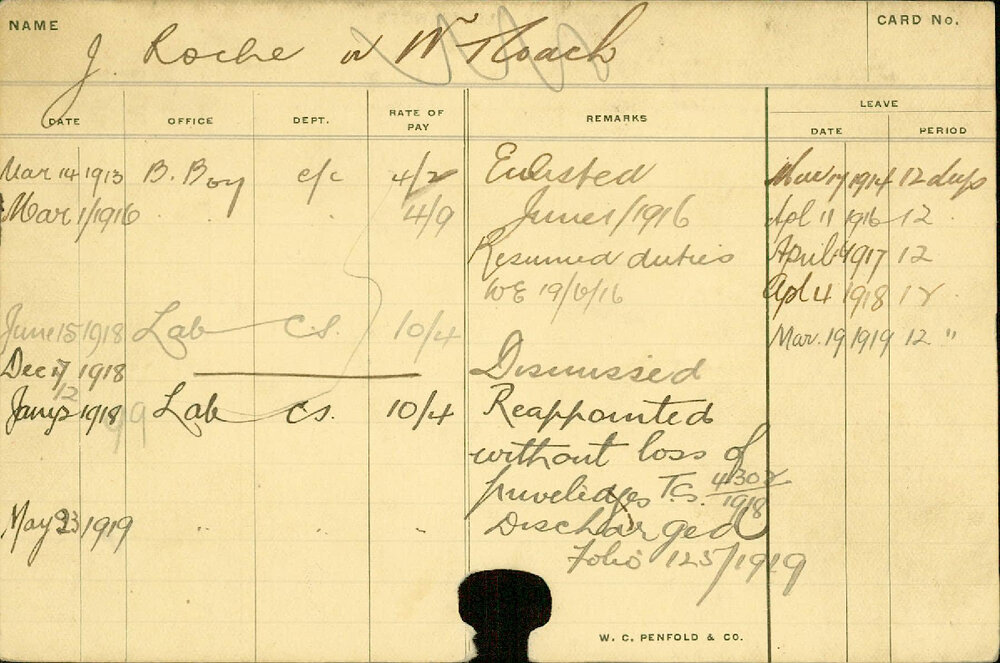 NAME
CARD No.
J. Roche or Wm Roach
DATE OFFICE DEPT. RATE OF PAY REMARKS LEAVE
DATE PERIOD
Mar 14 1913 B. Boy e/c 4/2 Enlisted Mar 17 1914 12 days
Mar 1/1916 . . 4/9 June 1/1916 Apl 11 1916 12 .
Resumed duties April 4 1917 12
WE 19/6/16 Apl 4 1918 12 .
June 15 1918 Lab C.S. 10/4 Mar. 19 1919 12 "
Dec 17 1918 Dismissed
Jany 2 1918 Lab C.S. 10/4 Reappointed
without loss of
priveledges T.S. 4302/1918
May 23 1919 .. . - Discharged
Folio 125/1919
W. C. PENFOLD & CO.